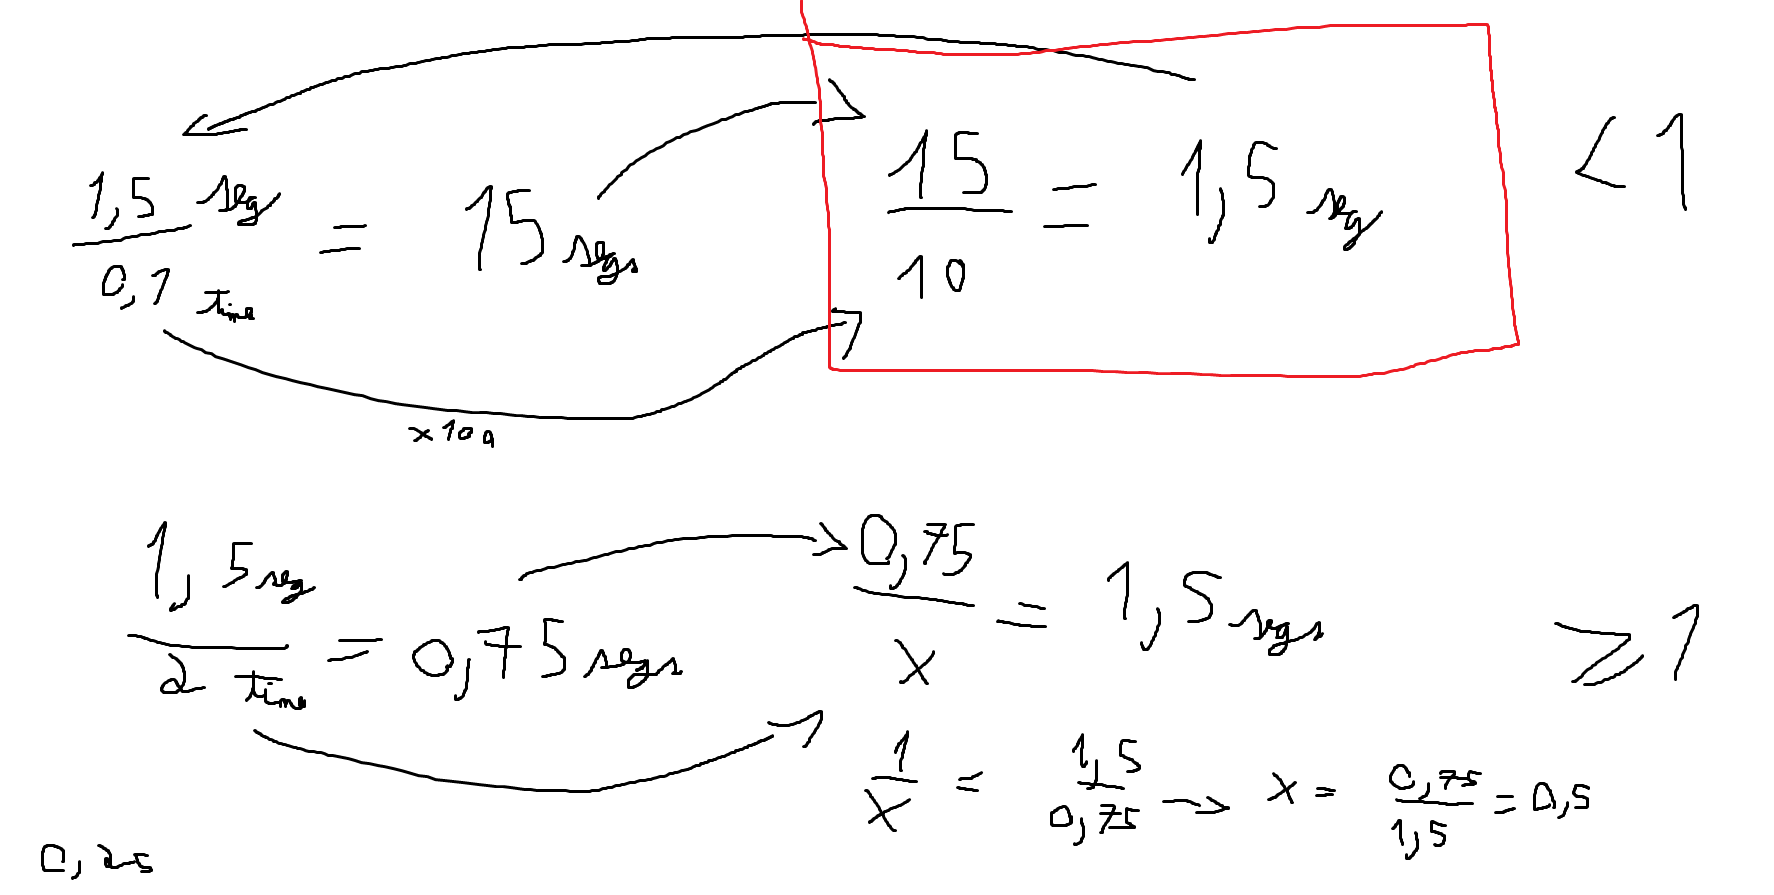 1,5 seg / 0,1 time = 15 segs
15 / 10 = 1,5 seg
< 1
x 10
1,5 seg / 2 time = 0,75 segs
0,75 / x = 1,5 segs
≥ 1
1 / x = 1,5 / 0,75 → x = 0,75 / 1,5 = 0,5
0,25